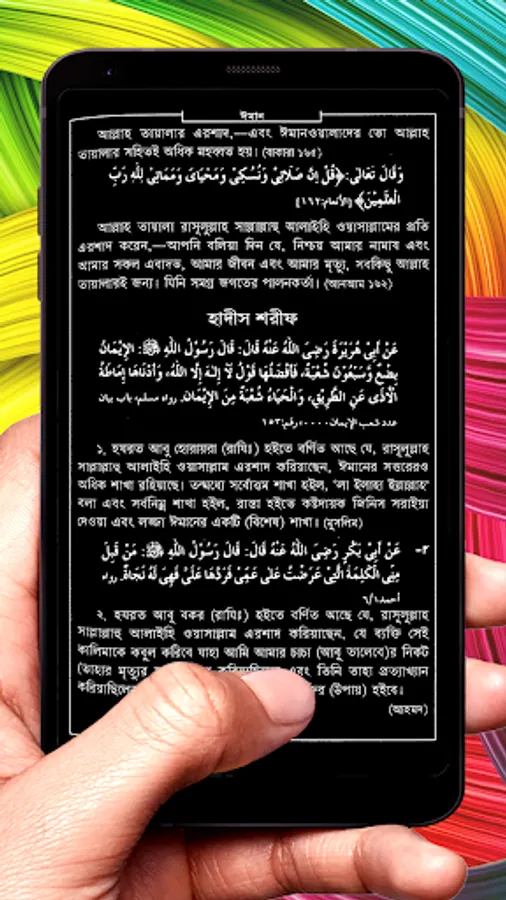 ঈমান
আল্লাহ তায়ালার এরশাদ,—এবং ঈমানওয়ালাদের তো আল্লাহ
তায়ালার সহিতই অধিক মহব্বত হয়। (বাকারা ১৬৫)
وَقَالَ تَعَالٰى: ﴿قُلْ اِنَّ صَلَاتِيْ وَنُسُكِيْ وَمَحْيَايَ وَمَمَاتِيْ لِلّٰهِ رَبِّ
الْعٰلَمِيْنَ﴾ [الأنعام:١٦٢]
আল্লাহ তায়ালা রাসূলুল্লাহ সাল্লাল্লাহু আলাইহি ওয়াসাল্লামের প্রতি
এরশাদ করেন,—আপনি বলিয়া দিন যে, নিশ্চয় আমার নামায এবং
আমার সকল এবাদত, আমার জীবন এবং আমার মৃত্যু, সবকিছু আল্লাহ
তায়ালারই জন্য। যিনি সমগ্র জগতের পালনকর্তা। (আনআম ১৬২)
হাদীস শরীফ
عَنْ اَبِيْ هُرَيْرَةَ رَضِيَ اللهُ عَنْهُ قَالَ: قَالَ رَسُوْلُ اللهِ ﷺ: الْإِيْمَانُ
بِضْعٌ وَسَبْعُوْنَ شُعْبَةً، فَاَفْضَلُهَا قَوْلُ لَآ اِلٰهَ اِلَّا اللهُ، وَاَدْنَاهَا اِمَاطَةُ
الْاَذٰى عَنِ الطَّرِيْقِ، وَالْحَيَاءُ شُعْبَةٌ مِنَ الْإِيْمَانِ. رواه مسلم، باب بيان
عدد شعب الإيمان.....رقم:١٥٣
১. হযরত আবু হোরায়রা (রাযিঃ) হইতে বর্ণিত আছে যে, রাসূলুল্লাহ
সাল্লাল্লাহু আলাইহি ওয়াসাল্লাম এরশাদ করিয়াছেন, ঈমানের সত্তরেরও
অধিক শাখা রহিয়াছে। তন্মধ্যে সর্বোত্তম শাখা হইল, 'লা ইলাহা ইল্লাল্লাহ'
বলা এবং সর্বনিম্ন শাখা হইল, রাস্তা হইতে কষ্টদায়ক জিনিস সরাইয়া
দেওয়া এবং লজ্জা ঈমানের একটি (বিশেষ) শাখা। (মুসলিম)
٢- عَنْ اَبِيْ بَكْرٍ رَضِيَ اللهُ عَنْهُ قَالَ: قَالَ رَسُوْلُ اللهِ ﷺ: مَنْ قَبِلَ
مِنِّي الْكَلِمَةَ الَّتِيْ عَرَضْتُ عَلٰى عَمِّيْ فَرَدَّهَا عَلَيَّ فَهِيَ لَهُ نَجَاةٌ. رواه
احمد ٦/١
২. হযরত আবু বকর (রাযিঃ) হইতে বর্ণিত আছে যে, রাসূলুল্লাহ
সাল্লাল্লাহু আলাইহি ওয়াসাল্লাম এরশাদ করিয়াছেন, যে ব্যক্তি সেই
কালিমাকে কবুল করিবে যাহা আমি আমার চাচা (আবু তালেবে)র নিকট
(তাহার মৃত্যুর এবং তিনি তাহা প্রত্যাখ্যান
করিয়াছিলেন (উপায়) হইবে।
(আহমদ)